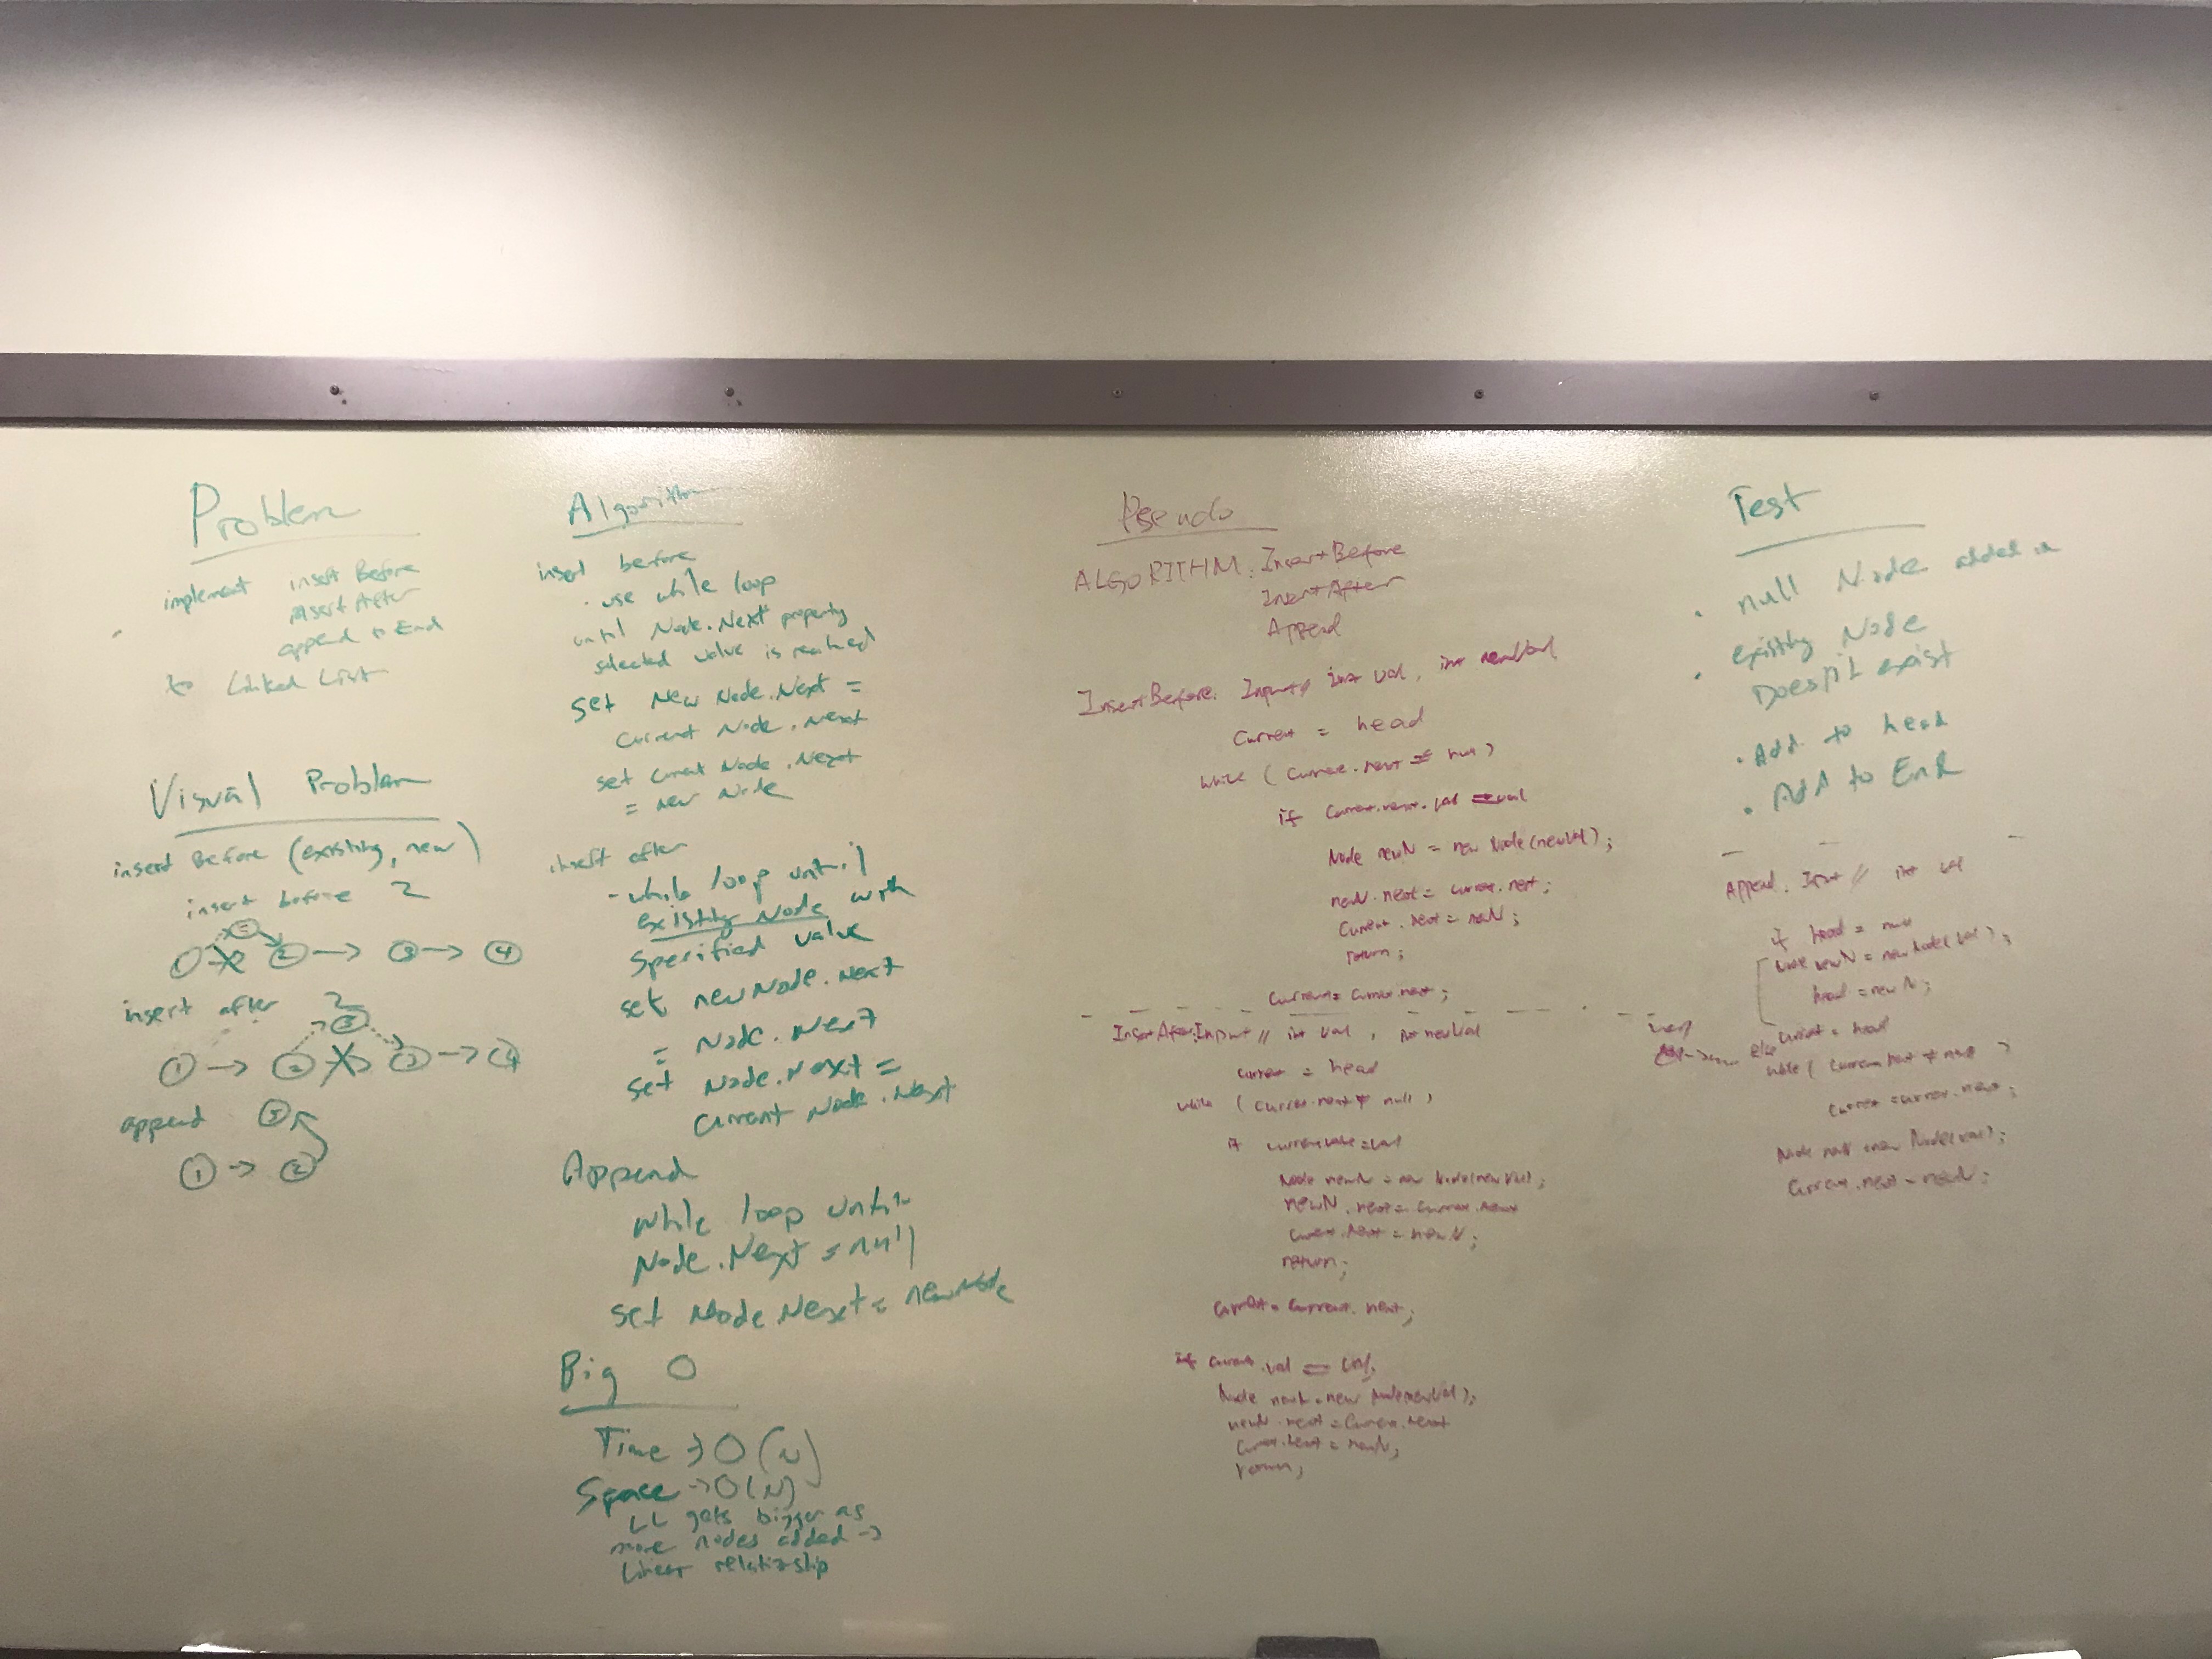 Problem
implement insert Before
insert After
append to End
to Linked List
Visual Problem
insert Before (existing, new)
insert before 2
1 5 2 → 3 → 4
insert after 2
5
1 → 2 3 → 4
append 5
1 → 2
Algorithm
insert before
· use while loop
until Node.Next property
selected value is reached
set New Node.Next =
Current Node.Next
set Current Node.Next
= new Node
insert after
- while loop until
existing Node with
specified value
set newNode.Next
= Node.Next
set Node.Next =
Current Node.Next
Append
while loop until
Node.Next = null
set Node.Next = newNode
Big O
Time → O(N)
Space → O(N)
LL gets bigger as
more nodes added →
Linear relationship
Pseudo
ALGORITHM: InsertBefore
InsertAfter
Append
InsertBefore: Input // int val, int newVal
Current = head
while (Current.next ≠ null)
if Current.next.val == val
Node newN = new Node(newVal);
newN.next = Current.next;
Current.next = newN;
return;
Current = Current.next;
InsertAfter: Input // int val, int newVal
Current = head
while (Current.next ≠ null)
if = val
Node newN = new Node(newVal);
newN.next = Current.next
Current.next = newN;
return;
Current = Current.next;
if Current.val == val
Node = new Node(newVal);
newN.next = Current.next
Current.next = newN;
return;
Test
· null Node added
· existing Node
Doesn't exist
· Add to head
· Add to End
Append. Input // int val
if head = null
Node newN = new Node(val);
head = newN;
else Current = head
while (Current.next ≠ null)
Current = Current.next;
Node = new Node(val);
Current.next = newN;